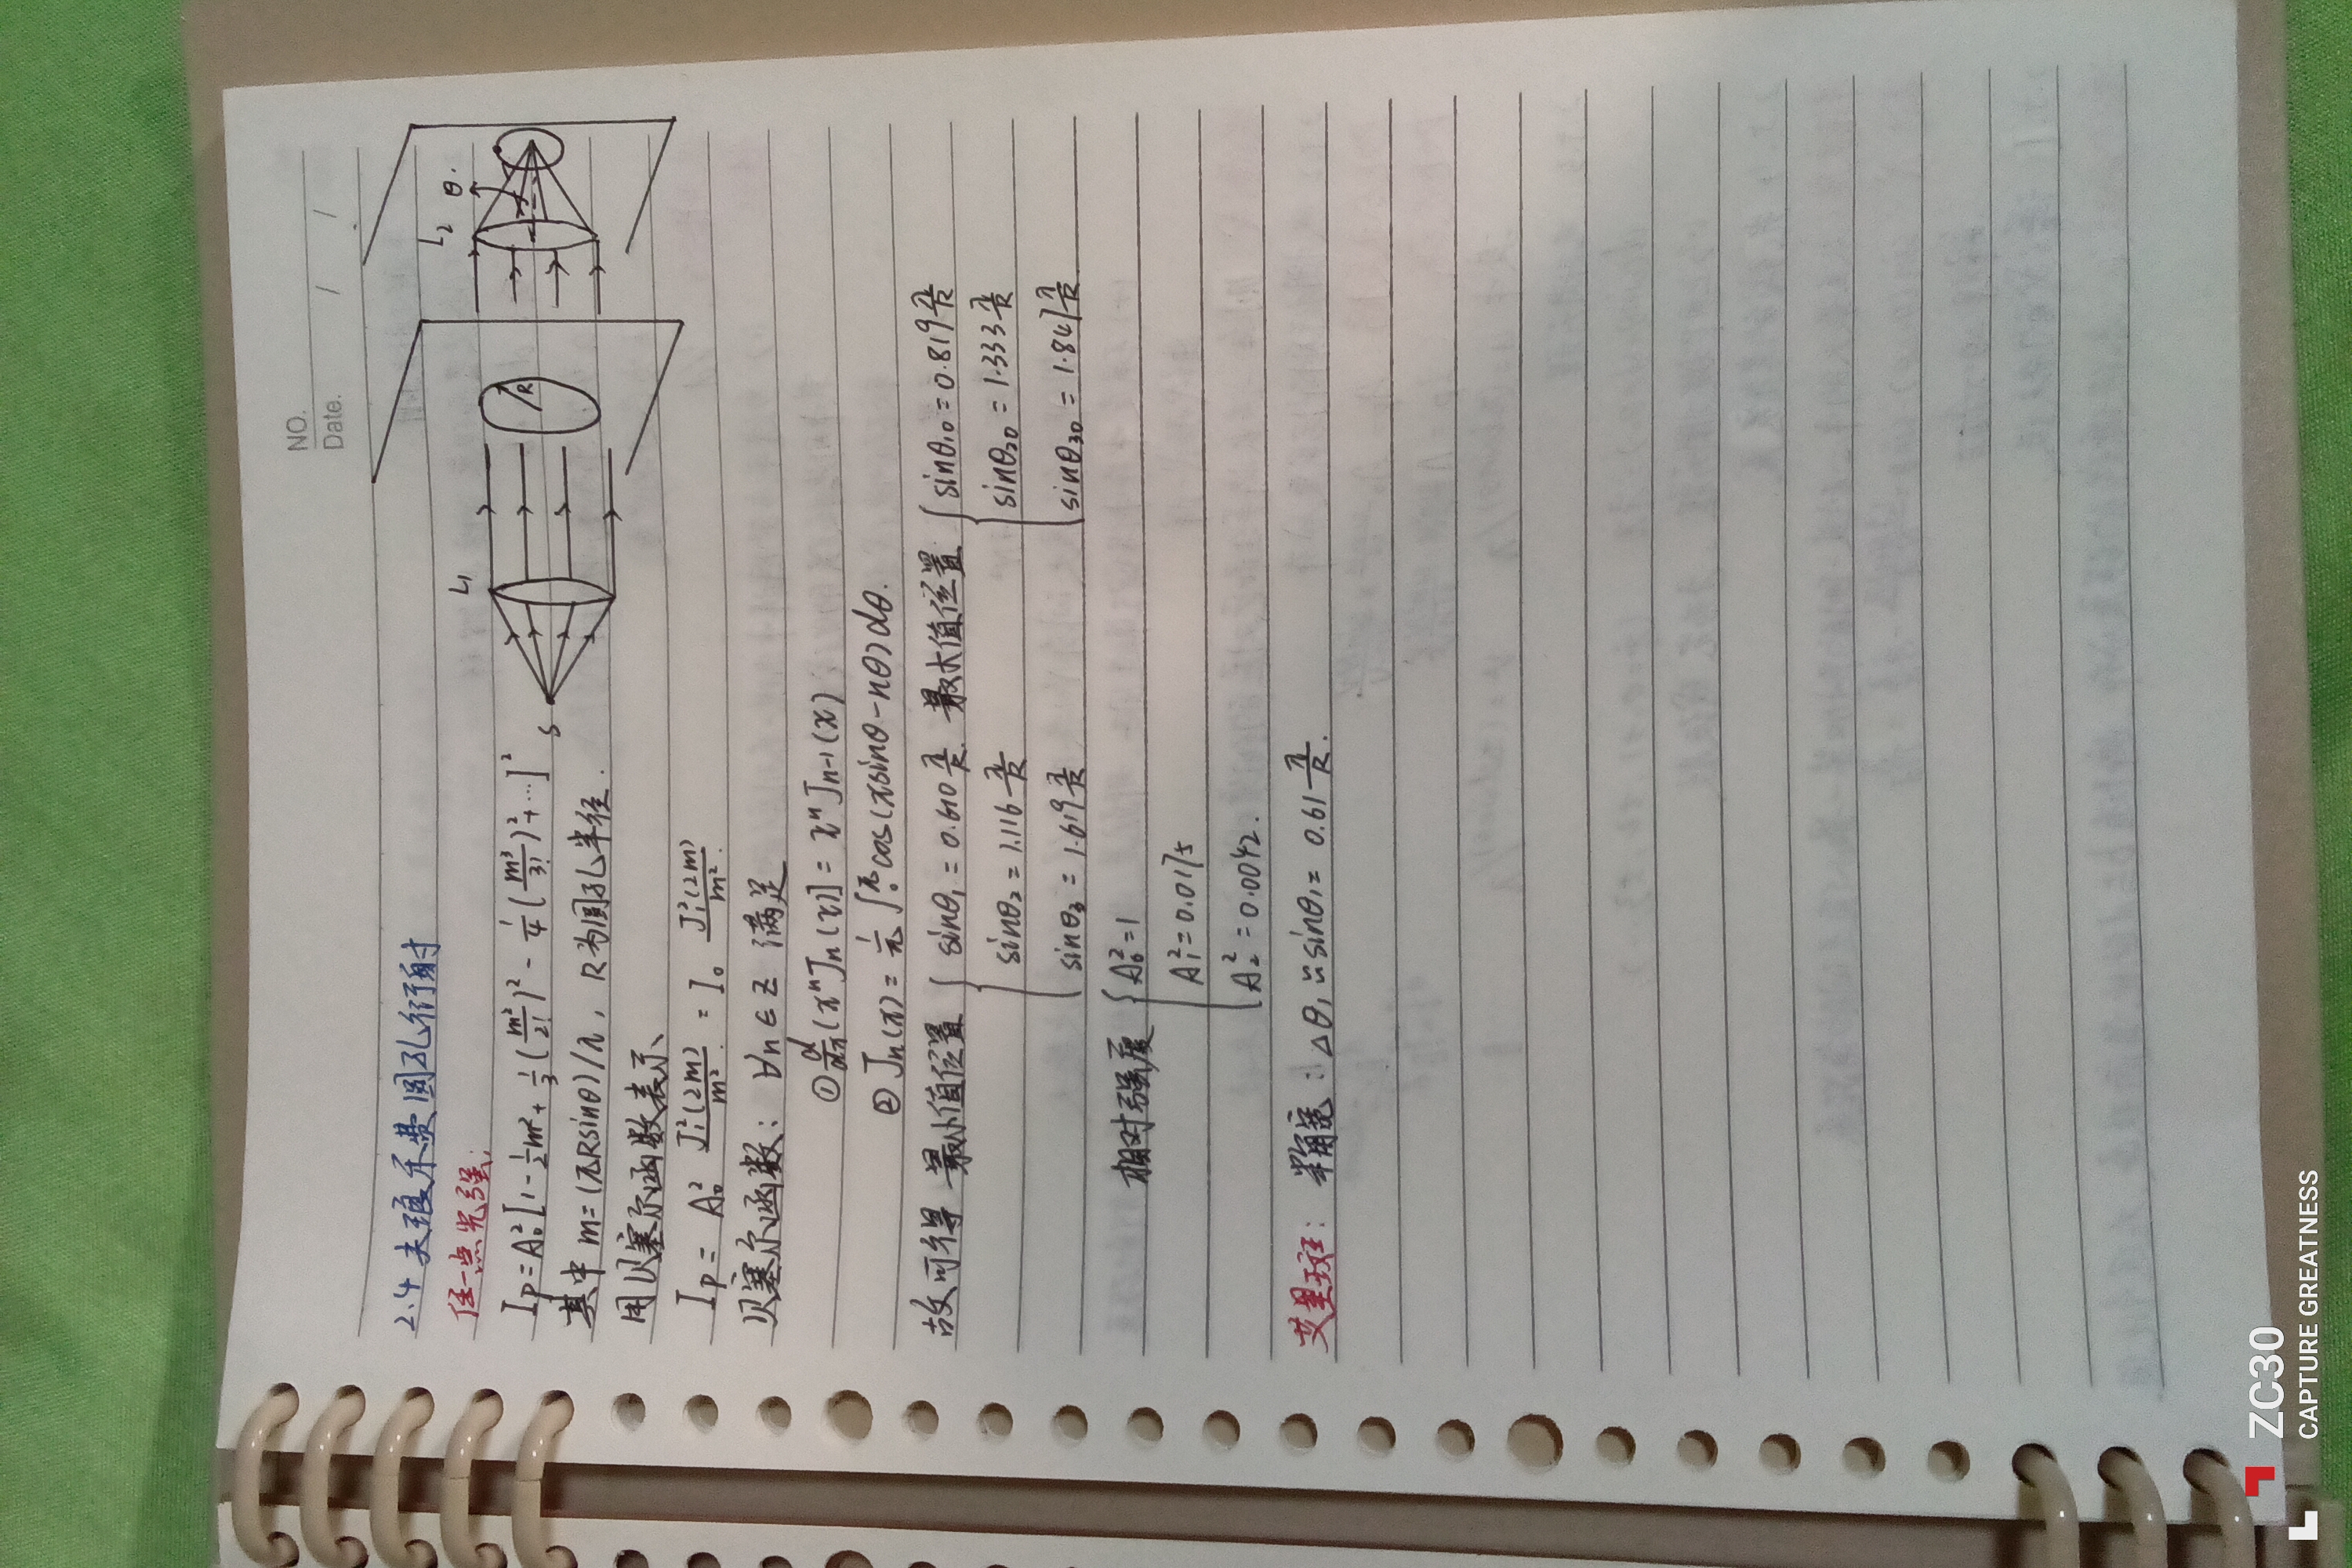 NO.
Date. / /
2.4 夫琅禾费圆孔衍射
任一点光强:
I_P = A₀² [1 - ½m² + ⅓(m²/2!)² - ¼(m³/3!)² + …]²
其中 m = (πRsinθ)/λ, R为圆孔半径.
S L₁ R L₂ θ.
用贝塞尔函数表示
I_P = A₀² J₁²(2m)/m² = I₀ J₁²(2m)/m².
贝塞尔函数: ∀n∈Z 满足
① d/dx (xⁿJₙ(x)] = xⁿJₙ₋₁(x)
② Jₙ(x) = 1/π ∫₀^π cos(xsinθ-nθ)dθ.
故可得 最小值位置 { sinθ₁ = 0.610 λ/R. 最大值位置 { sinθ₁₀ = 0.819 λ/R
sinθ₂ = 1.116 λ/R sinθ₂₀ = 1.333 λ/R
sinθ₃ = 1.619 λ/R sinθ₃₀ = 1.847 λ/R
相对强度 { A₀² = 1
A₁² = 0.0175
A₂² = 0.0042.
艾里斑: 半角宽: Δθ₁ ≈ sinθ₁ = 0.61 λ/R.
ZC30
CAPTURE GREATNESS